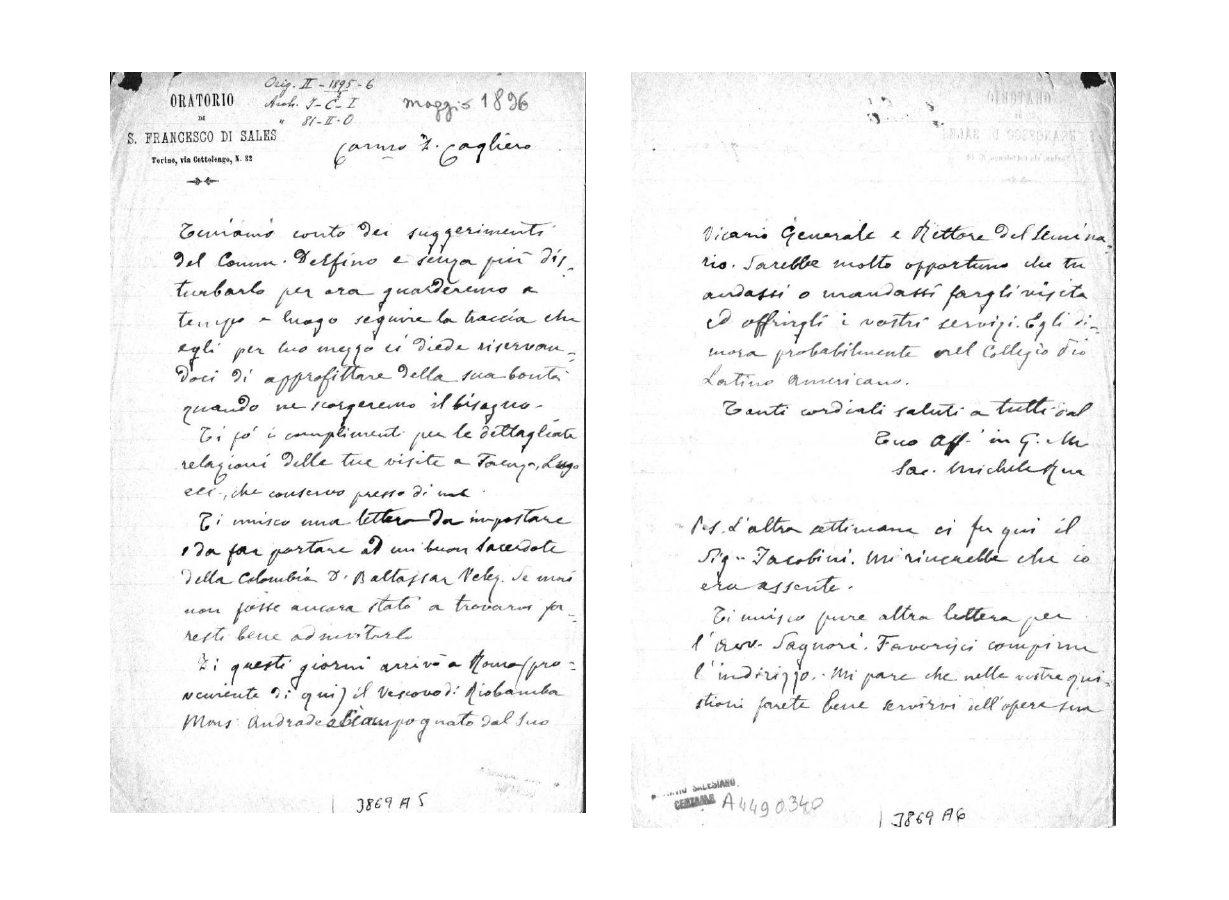 Orig. II - 1895 - 6
Arch. J-C-I
" 81-II-0
maggio 1896
ORATORIO
DI
S. FRANCESCO DI SALES
Torino, via Cottolengo, N. 32
Carmo D. Cagliero
Teniamo conto dei suggerimenti
del Comm. Delfino e senza più dis-
turbarlo per ora guarderemo a
tempo e luogo seguire la traccia che
egli per tuo mezzo ci diede riservan-
doci di approfittare della sua bontà
quando ne scorgeremo il bisogno.
Ti fo i complimenti per le dettagliate
relazioni delle tue visite a Faenza, Lugo
ecc., che conservo presso di me.
Ti unisco una lettera da impostare
o da far portare ad un buon Sacerdote
della Colombia D. Baltassar Velez. Se mai
non fosse ancora stato a trovarvi fa-
resti bene ad invitarlo
Di questi giorni arrivò a Roma (pro-
veniente di qui) il Vescovo di Riobamba
Mons Andrade accompagnato dal suo
3869 A 5
Vicario Generale e Rettore del Semina-
rio. Sarebbe molto opportuno che tu
andassi o mandassi fargli visita
ed offrirgli i vostri servizi. Egli di-
mora probabilmente nel Collegio Pio
Latino Americano.
Tanti cordiali saluti a tutti dal
Tuo Aff. in G. M
Sac. Michele Rua
P.S. L'altra settimana ci fu qui il
Sig. Jacobini. Mi rincrebbe che io
era assente.
Ti unisco pure altra lettera per
l'Avv. Sagnori. Favorisci compirne
l'indirizzo. Mi pare che nelle vostre qui-
stioni farete bene servirvi dell'opera sua
SALESIANO
CENTRALE
A4490340
3869 A6